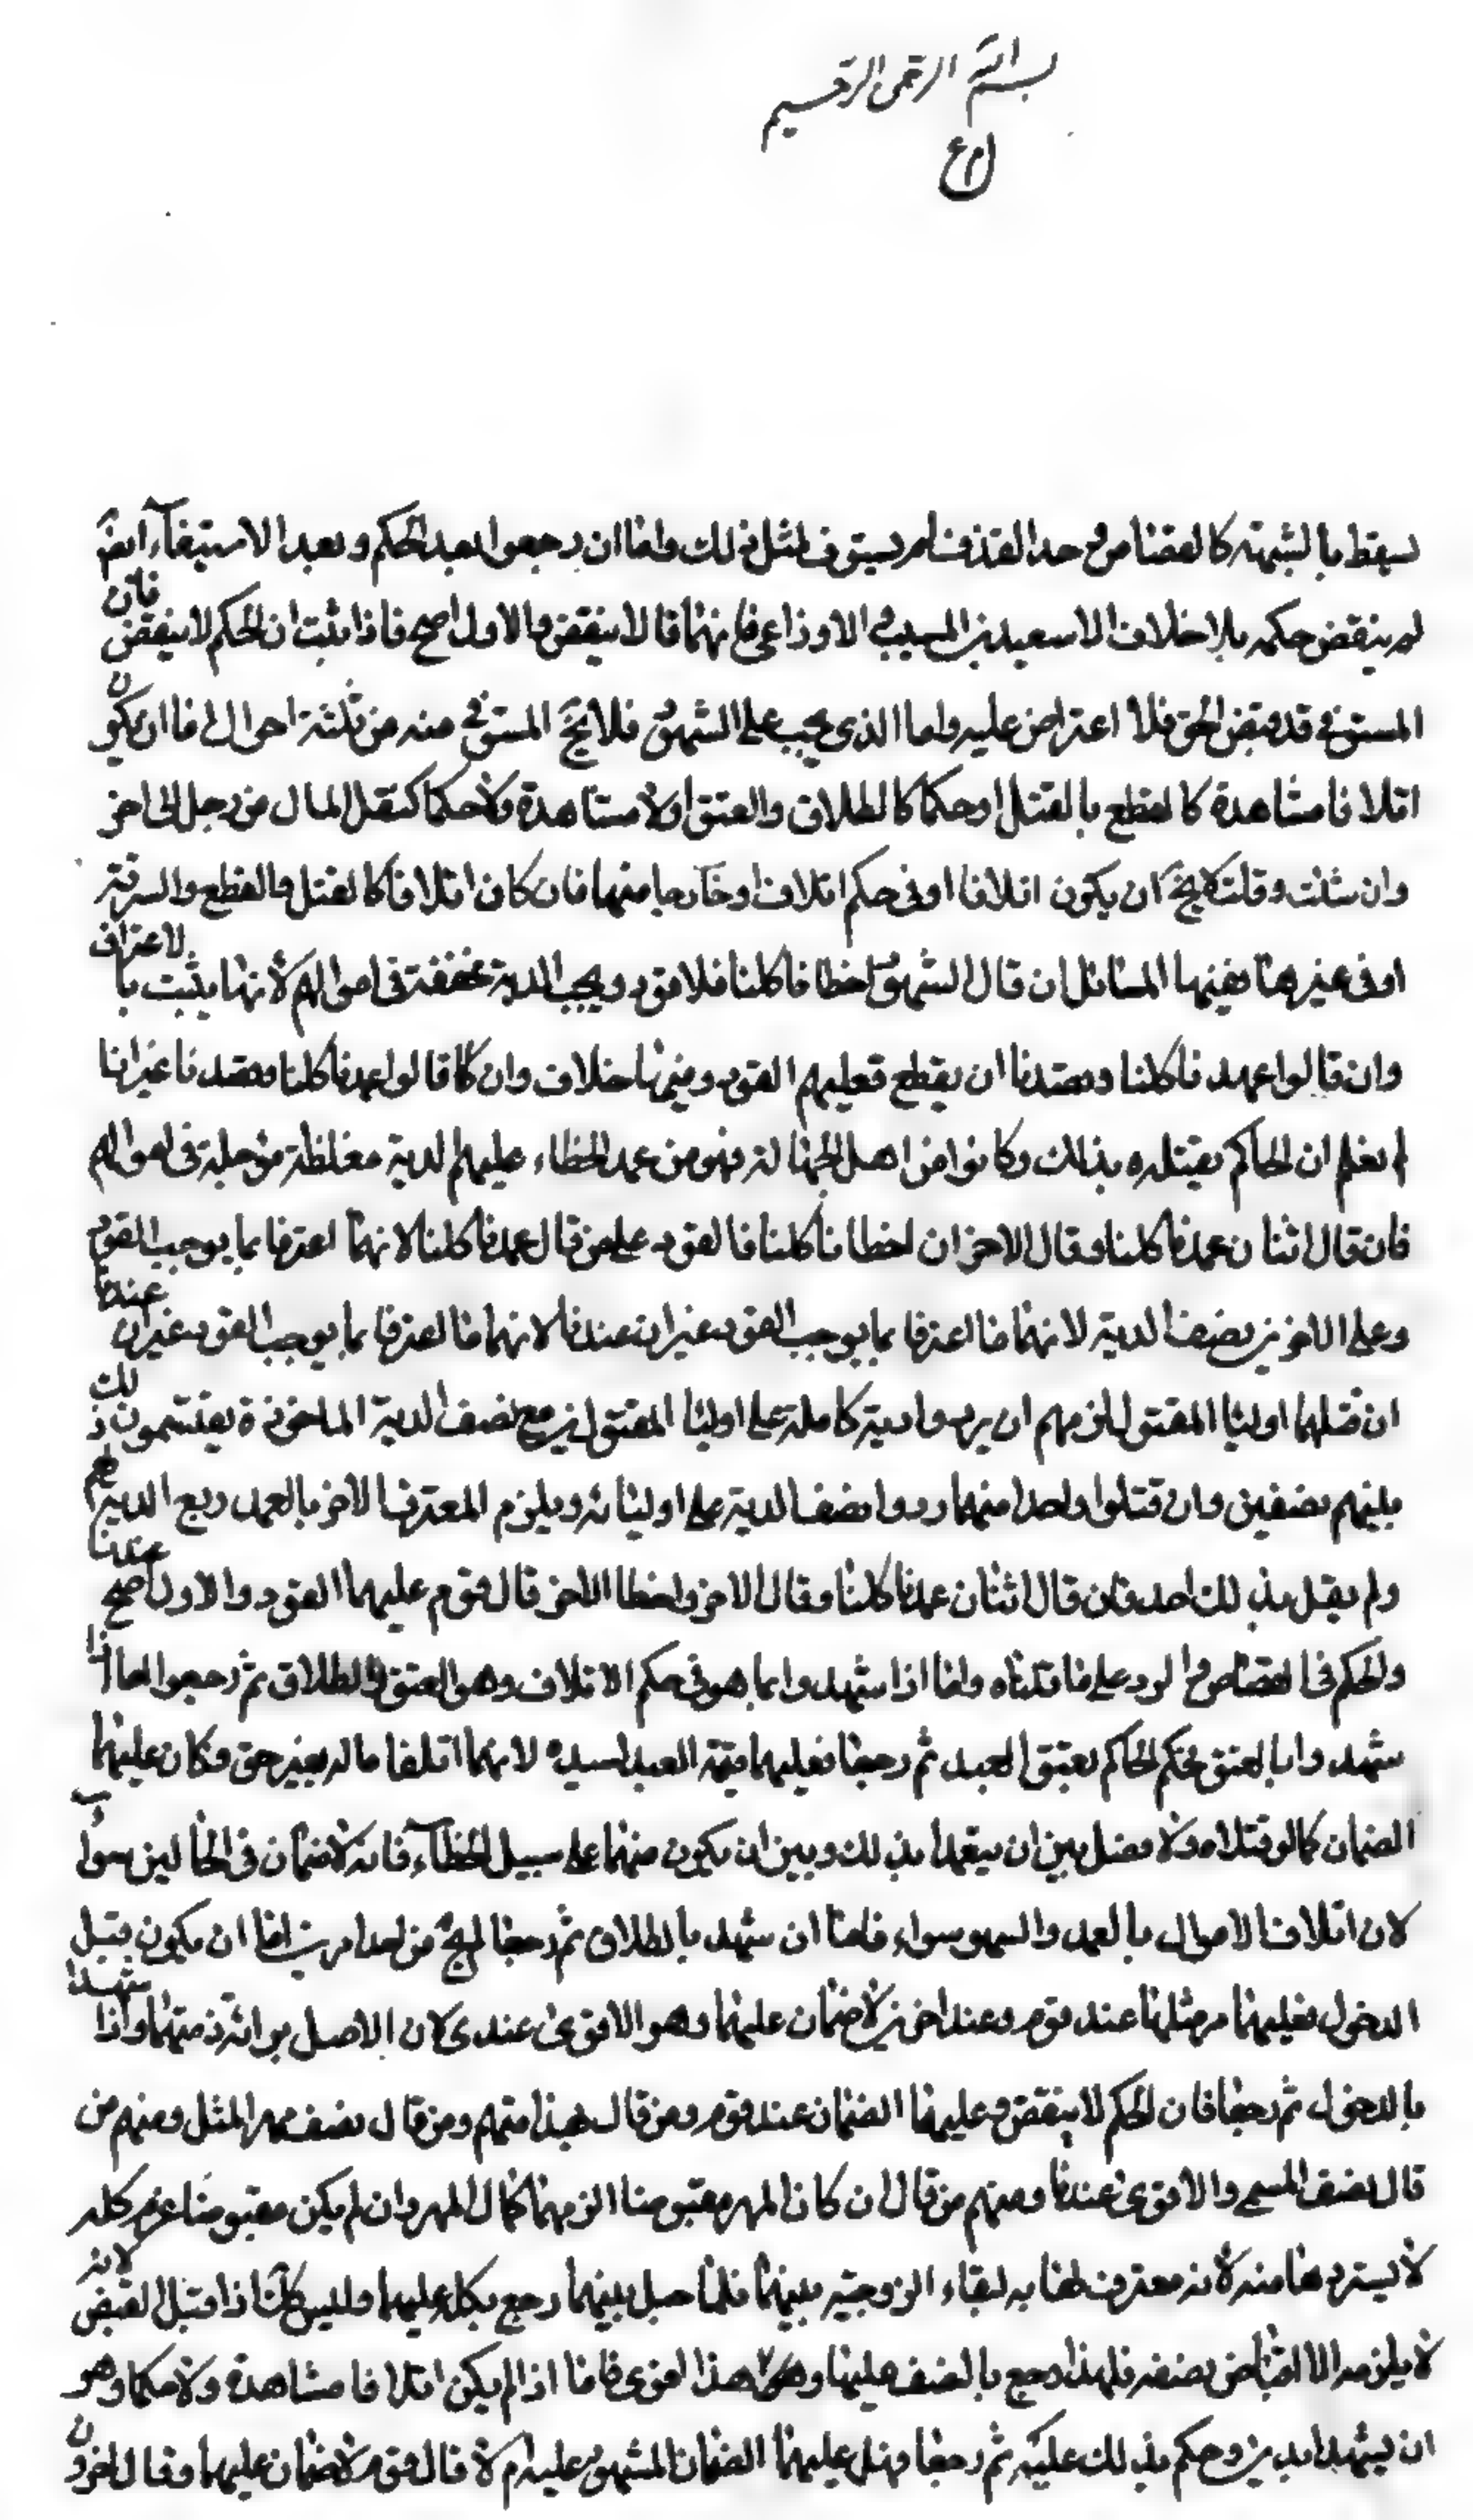 بسم الله الرحمن الرحيم
يسقط بالشبهة كالقصاص و حد القذف لم يستوف لمثل ذلك واما ان رجعوا بعد الحكم و بعد الاستيفاء ايضا
لم ينقض حكمه بلا خلاف الا سعيد بن المسيب و الاوزاعي فانهما قالا ينقض و الاول اصح فاذا ثبت ان الحكم لا ينقض فان
المستوفى قد قبض الحق فلا اعتراض عليه و اما الذي يجب على الشهود فلا يخ المستوفى منه من ثلثة احوال اما ان يكون
اتلافا مشاهدة كالقطع بالقتل او حكما كالطلاق والعتق او لا مشاهدة و لا حكما كنقل المال من رجل الى اخر
وان شئت قلت لا يخ ان يكون اتلافا او في حكم اتلاف او خارجا منهما فان كان اتلافا كالقتل والقطع والسرقة
او في غيرها ففيها المسائل ان قال الشهود اخطانا كلنا فلا قود و يجب الدية مخففة في اموالهم لانها يثبت بالاعتراف
وان قالوا عمدنا كلنا و قصدنا ان يقطع فعليهم القود و فيها خلاف وان كا قالوا عمدنا كلنا وقصدنا غير انا
لم نعلم ان الحاكم يقتله بذلك وكانوا من اهل الجهالة فهو من عمد الخطاء عليهم الدية مغلظة مؤجلة في اموالهم
فان قال اثنان عمدنا كلنا وقال الاخران اخطانا كلنا فالقود على من قال عمدنا كلنا لانهما اعترفا بما يوجب القود
وعلى الاخرين نصف الدية لانهما ما اعترفا بما يوجب القود غير ان عندنا لانهما ما اعترفا بما يوجب القود غير ان عندنا
ان قتلهما اوليا المقتول لزمهم ان يردوا دية كاملة على اوليا المقتولين مع نصف الدية الماخوذة يقتسمون ذلك
بينهم نصفين وان قتلوا واحدا منهما ردوا نصف الدية على اوليائه و يلزم المعترف الاخر بالعمد ربع الدية لهم
ولم يقل بذلك احد فان قال اثنان عمدنا كلنا وقال الاخر واخطا الاخر قال قوم عليهما القود والاول اصح عندنا
والحكم في القصاص و الرد على ما قلناه واما اذا شهدوا بما هو في حكم الاتلاف وهو العتق و الطلاق ثم رجعوا اما اذا
شهدوا بالعتق فحكم الحاكم بعتق العبد ثم رجعا فعليهما قيمة العبد لسيده لانهما اتلفا ماله بغير حق فكان عليهما
الضمان كما لو قتلاه ولا فصل بين ان يتعمدا بذلك و بين ان يكون منهما على سبيل الخطاء فانه لا ضمان في الحالين سواء
لان اتلاف الاموال بالعمد والسهو سواء فاما ان شهد بالطلاق ثم رجعا لم يخ من احد امرين اما ان يكون قبل
الدخول فعليهما مهر مثلها عند قوم و عند اخرين لا ضمان عليهما وهو الاقوى عندي لان الاصل براءة ذمتهما واذا شهدا
بالدخول ثم رجعا فان الحكم لا ينقض و عليهما الضمان عند قوم و من قال بهذا منهم من قال نصف مهر المثل ومنهم من
قال نصف المسمى والاقوى عندنا ومنهم من قال ان كان المهر مقبوضا الزمهما كمال المهر وان لم يكن مقبوضا غرم كله
لا يستردها منه لانه معترف لها به لبقاء الزوجية بينهما فلما حيل بينهما رجع بكله عليهما وليس كك اذا قبل القبض لانه
لا يلزمه الا اقباض نصفه فلهذا رجع بالنصف عليهما وهو هذا اقوى فاما اذا لم يكن اتلافا مشاهدة ولا حكما وهو
ان يشهدا بدين و حكم بذلك عليه ثم رجعا فهل عليهما الضمان للمشهود عليه ام لا قال قوم لا ضمان عليهما وقال اخرون